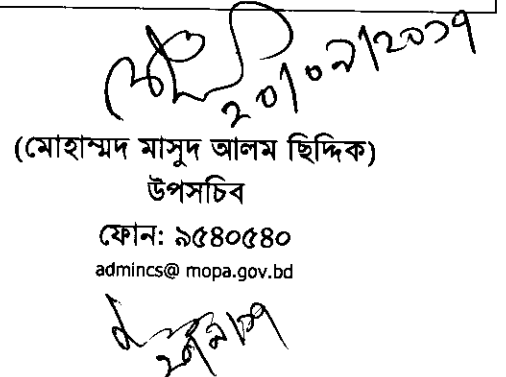 ২০/০৯/২০১৭
(মোহাম্মদ মাসুদ আলম ছিদ্দিক)
উপসচিব
ফোন: ৯৫৪০৫৪০
admincs@ mopa.gov.bd